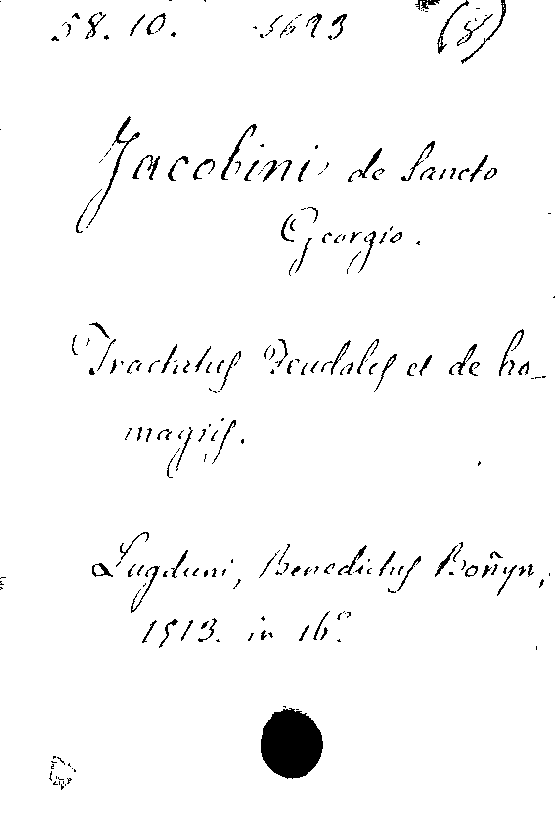 58. 10. 5693 (8)
Jacobini de Sancto
Georgio.
Tractatus Feudales et de ho-
magiis.
Lugduni, Benedictus Boñyn,
1513. in 16°.